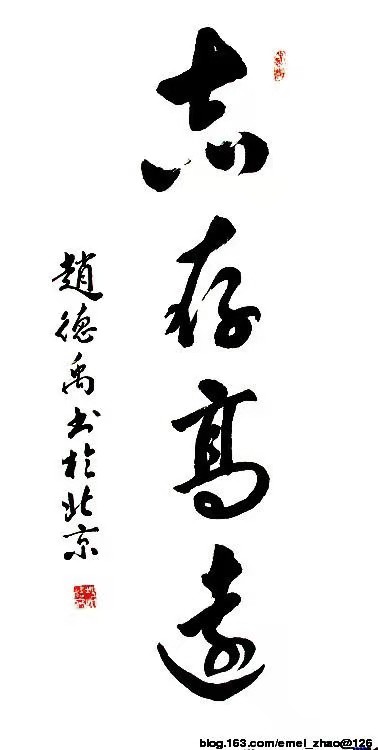 志存高遠
趙德禹书於北京
blog.163.com/emei_zhao@126